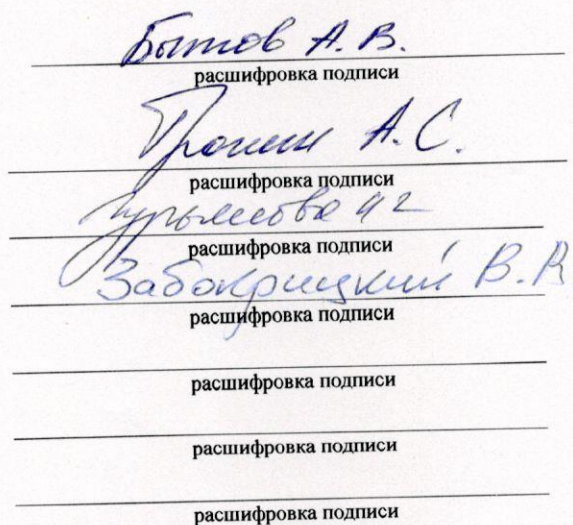 Бытов А. В.
расшифровка подписи
А. С.
расшифровка подписи
расшифровка подписи
Забокрицкий В. В
расшифровка подписи
расшифровка подписи
расшифровка подписи
расшифровка подписи